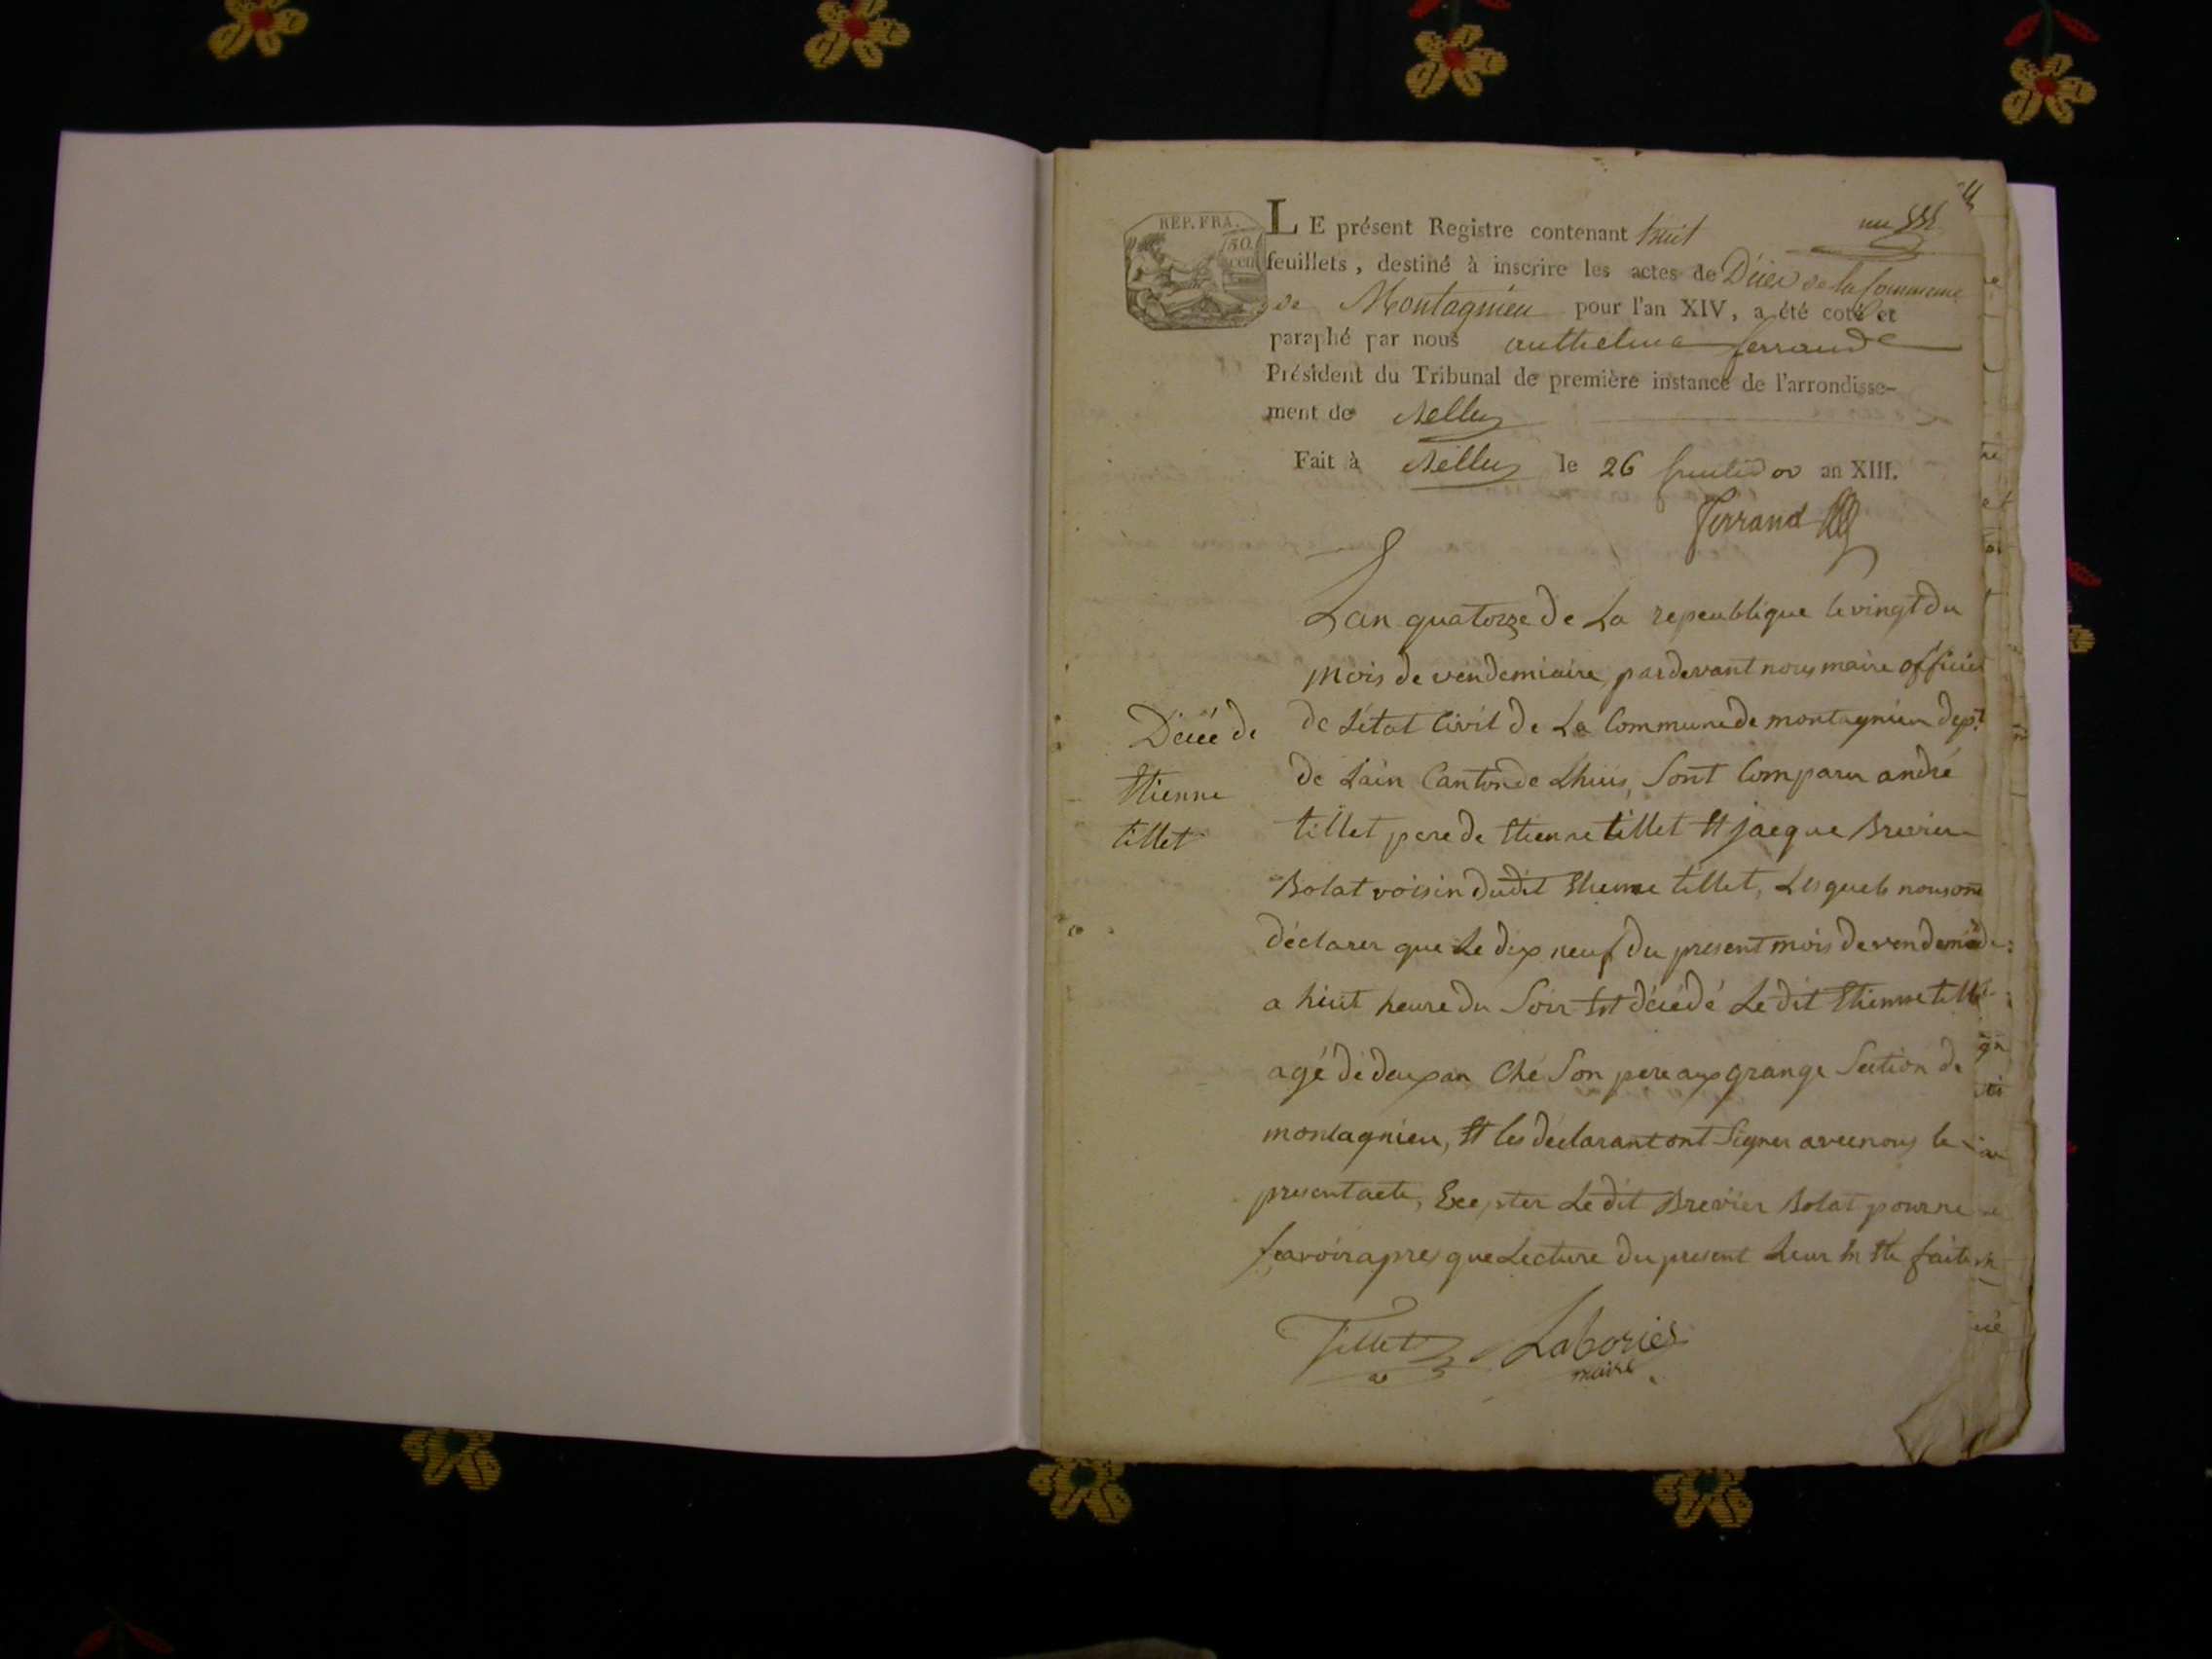 REP. FRA.
50.
cen
LE présent Registre contenant huit
feuillets, destiné à inscrire les actes de Décès de la Commune
de Montagnieu pour l'an XIV, a été coté et
paraphé par nous anthelme ferrand
Président du Tribunal de première instance de l'arrondisse-
ment de Belley
Fait à Belley le 26 fructidor an XIII.
Ferrand
Lan quatorze de La repeublique le vingt du
mois de vendemiaire, pardevant nous maire officier
de L'état Civil de La Commune de montagnieu dept
de Lain Canton de Lhuis, Sont Comparu andré
tillet pere de Etienne tillet Et jacque Brevier
Bolat voisin dudit Etienne tillet, Lesquels nous ont
déclarer que Le dix neuf du present mois de vendemi
a huit heure du Soir Est décédé Le dit Etienne tillet
agé de deux an Ché Son pere aux grange Section de
montagnieu, Et les declarant ont Signer avec nous le
present acte, Excepter Le dit Brevier Bolat pour ne
Scavoir apres que Lecture du present Leur En Ete faite
Décé de
Etienne
tillet
Tillet Laboriès
maire